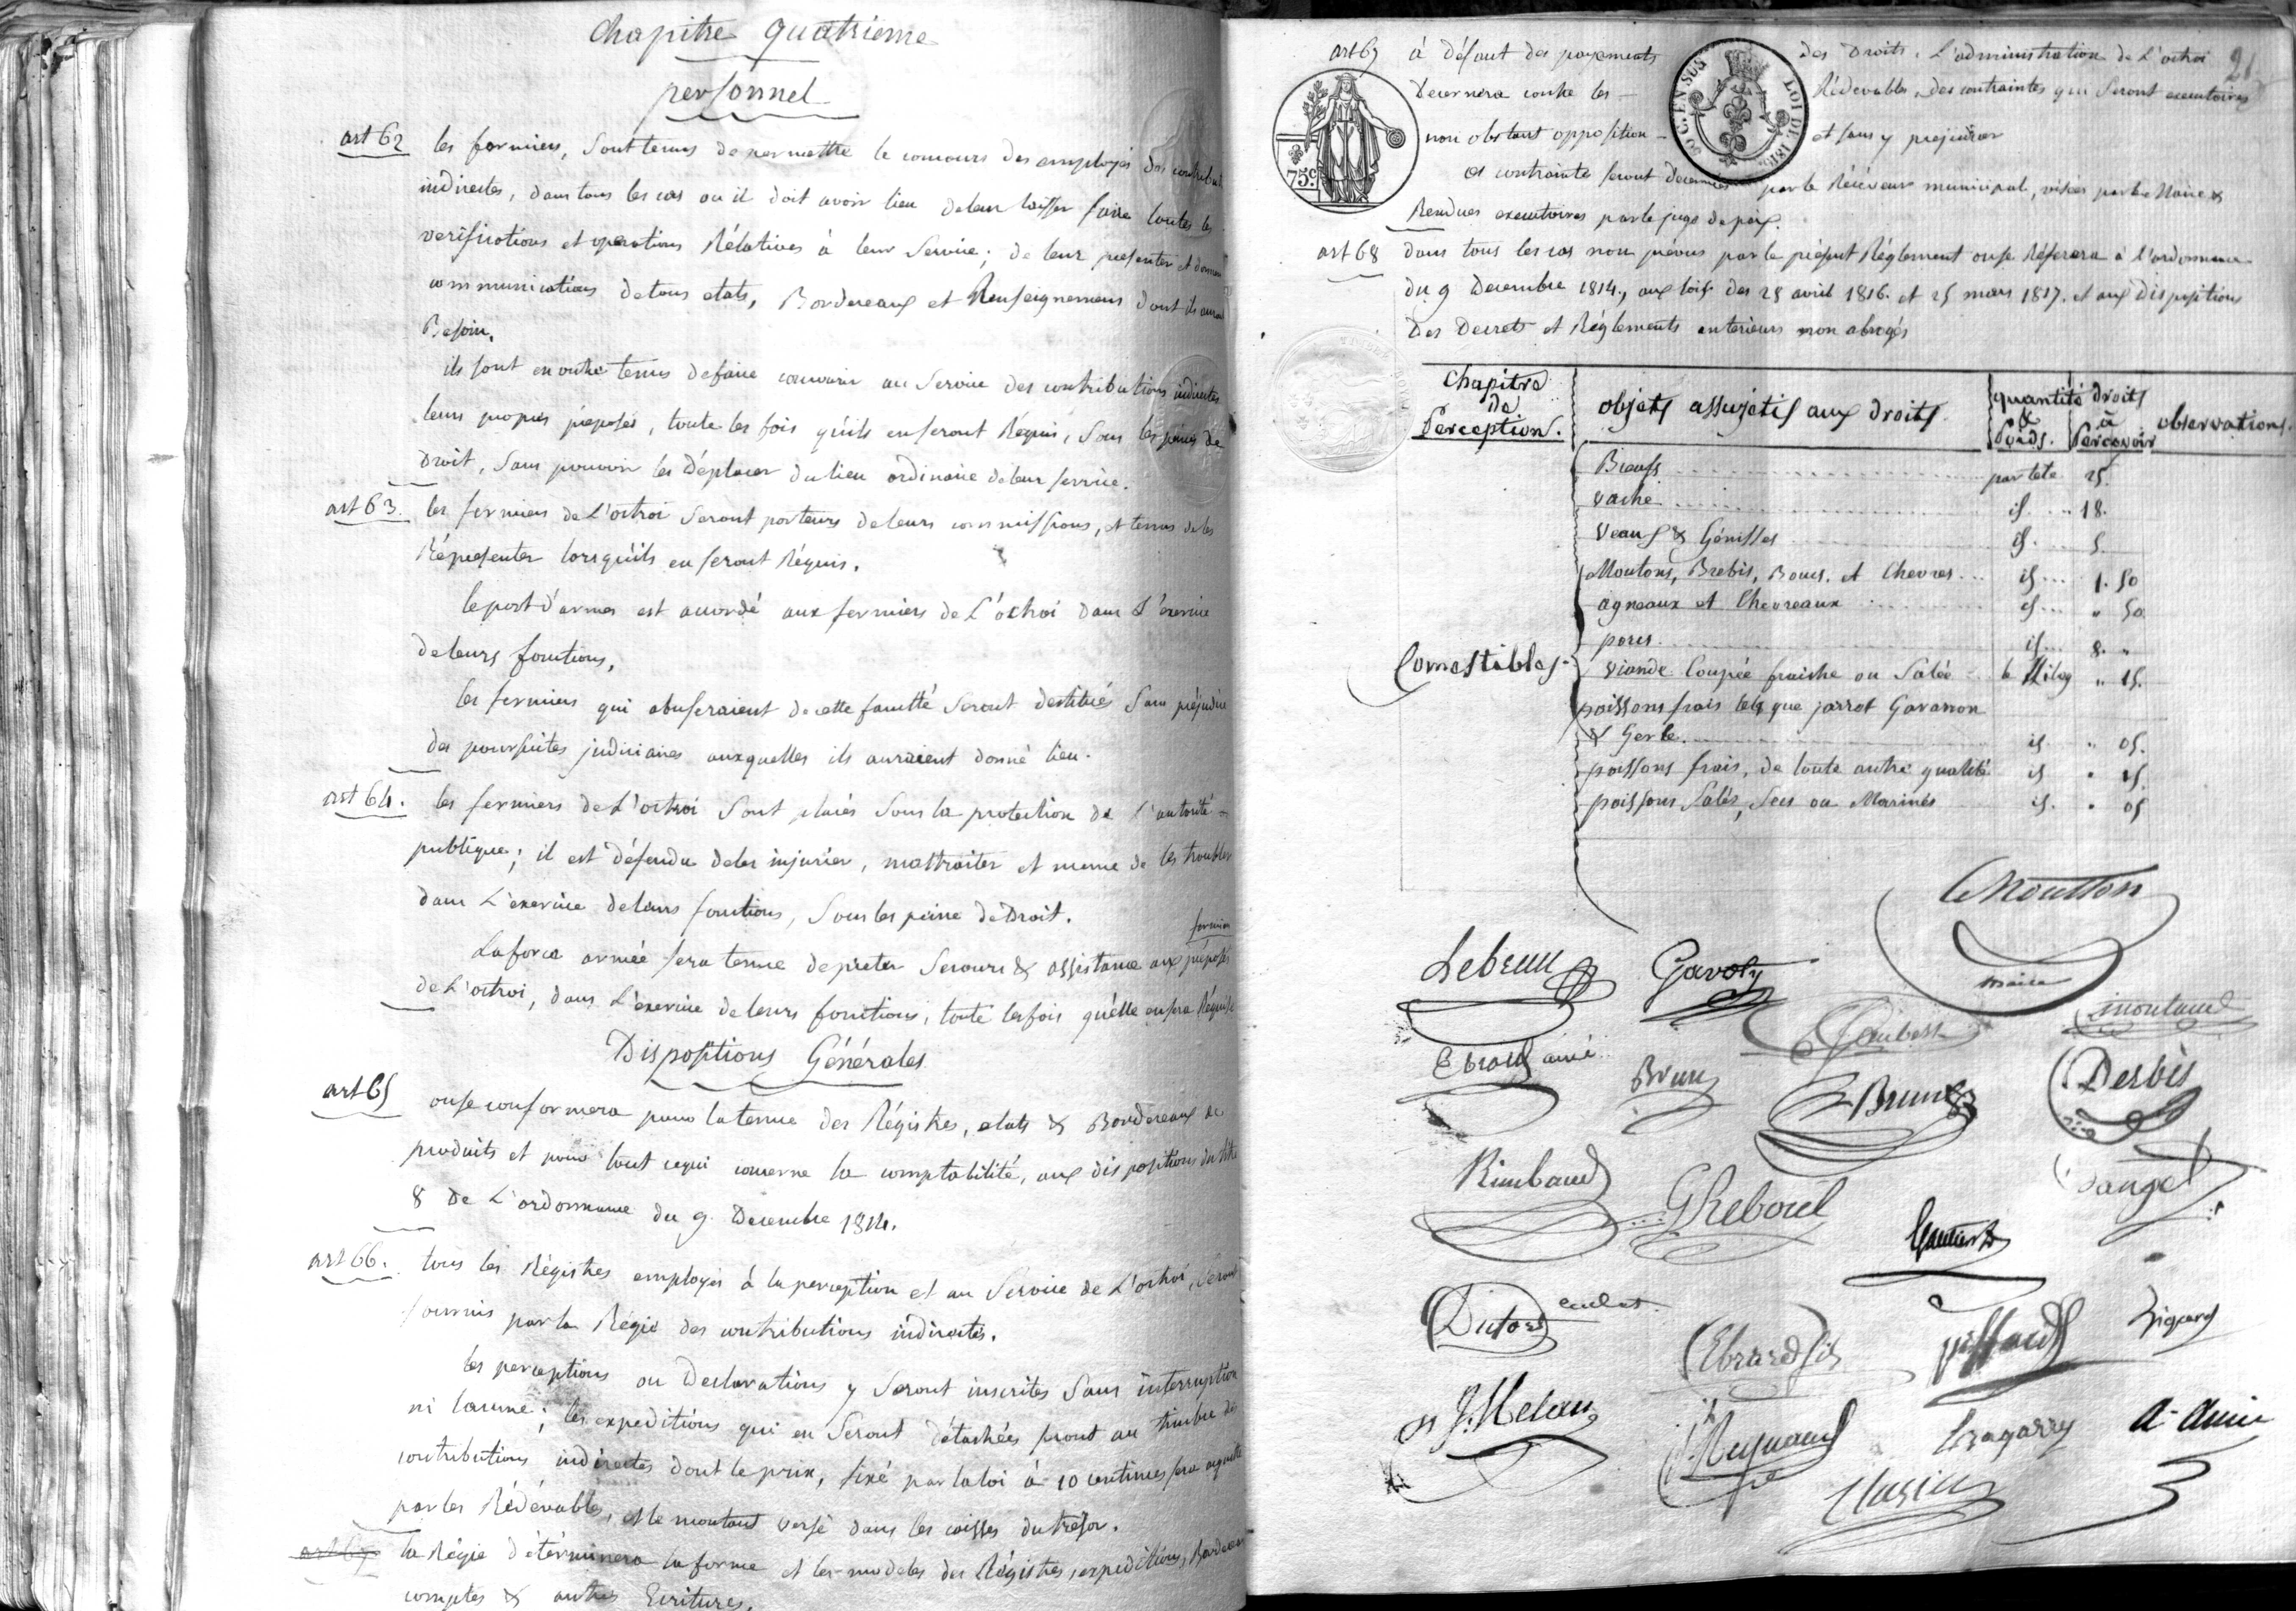 Chapitre quatrieme
personnel
art 62 les fermiers, sont tenus de permettre le concours des employés des contribut
indirectes, dans tous les cas ou il doit avoir lieu de leur laisser faire toutes les
verifications et operations Rélatives à leur Service; de leur presenter et donner
communications de tous etats, Bordereaux et Renseignemens dont ils auront
Besoin.
ils sont en outre tenus de faire concourir au Service des contributions indirectes
leurs propres préposés, toute les fois qu'ils en seront Réquis, Sous les peines de
Droit, Sans pouvoir les Déplacer du lieu ordinaire de leur service.
art 63. les fermiers de L'octroi Seront porteurs de leurs commissions, et tenus de les
Répresenter lorsqu'ils en seront Réquis.
le port d'armes est accordé aux fermiers de L'octroi dans L'exercice
de leurs fonctions,
les fermiers qui abuseraient de cette faculté Seront destitués Sans préjudice
des poursuites judiciaires auxquelles ils auraient donné lieu.
art 64. les fermiers de L'octroi Sont placés Sous la protection de l'autorité
publique; il est défendu de les injurier, maltraiter et meme de les troubler
dans L'exercice de leurs fonctions, Sous les peine de Droit.
fermiers
La force armée sera tenue de preter Secours & assistance aux préposés
de L'octroi, dans L'exercice de leurs fonctions, toute les fois qu'elle en sera Réquise
Dispositions Générales
art 65 on se conformera pour la tenue des Régistres, etats & Bordereaux de
produits et pour tout ce qui concerne la comptabilité, aux dispositions du titre
8 de L'ordonnance du 9. Decembre 1814.
art 66. tous les Régistres employés à la perception et au Service de L'octroi, Seront
fournis par la Régie des contributions indirectes.
les perceptions ou Declarations y Seront inscrites Sans interruption
ni lacune; les expeditions qui en Seront détachées seront au timbre des
contributions indirectes dont le prix, fixé par la loi à 10 centimes sera acquitté
par les Rédévables, et le montant versé dans les caisses du trésor.
art 67 la Régie déterminera la forme et les modeles des Régistres, expeditions, Bordereaux
comptes & autres Ecritures.
21
art 67 à Défaut de payements des Droits, L'administration de L'octroi
Decernera contre les Rédevables, des contraintes qui Seront executoires
non obstant opposition et sans y prejudicier
75.c
50 C. EN SUS
LOI DE 1816.
et contrainte seront decernées par le Réceveur municipal, visées par le Maire &
Rendues executoires par le juge de paix.
art 68 dans tous les cas non prévus par le présent Réglement on se Réferera à l'ordonnance
du 9 Decembre 1814., aux lois des 28 avril 1816. et 25 mars 1817. et aux Dispositions
Des Decrets et Réglements anterieurs non abrogés
Chapitre de Perception. objets assujetis aux droits quantité & Poids. droits à Percevoir observations.
Bœufs par tete 25.
vache id 18.
Veaux & Génisses id 5.
Moutons, Brebis, Boucs. et Chevres id 1. 50
agneaux et Chevreaux id " 50
porcs id 8. "
Comestibles viande Coupée fraiche ou Salée le Kilog " 15.
poissons frais tels que jarrot Gavaron
& Gerle. id " 05.
poissons frais, de toute autre qualité id " 15.
poissons Salés, Secs ou Marinés id. " 05
Moutton
maire
Lebrun Gavoty
Jaubert montaud
Ebrard ainé Brun Brun Derbès
Rimbaud G Reboul Dange
Gautier
Dutord cadet
Ebrard fils Sigard
J. Melan Reynaud Lragarry A. Amic